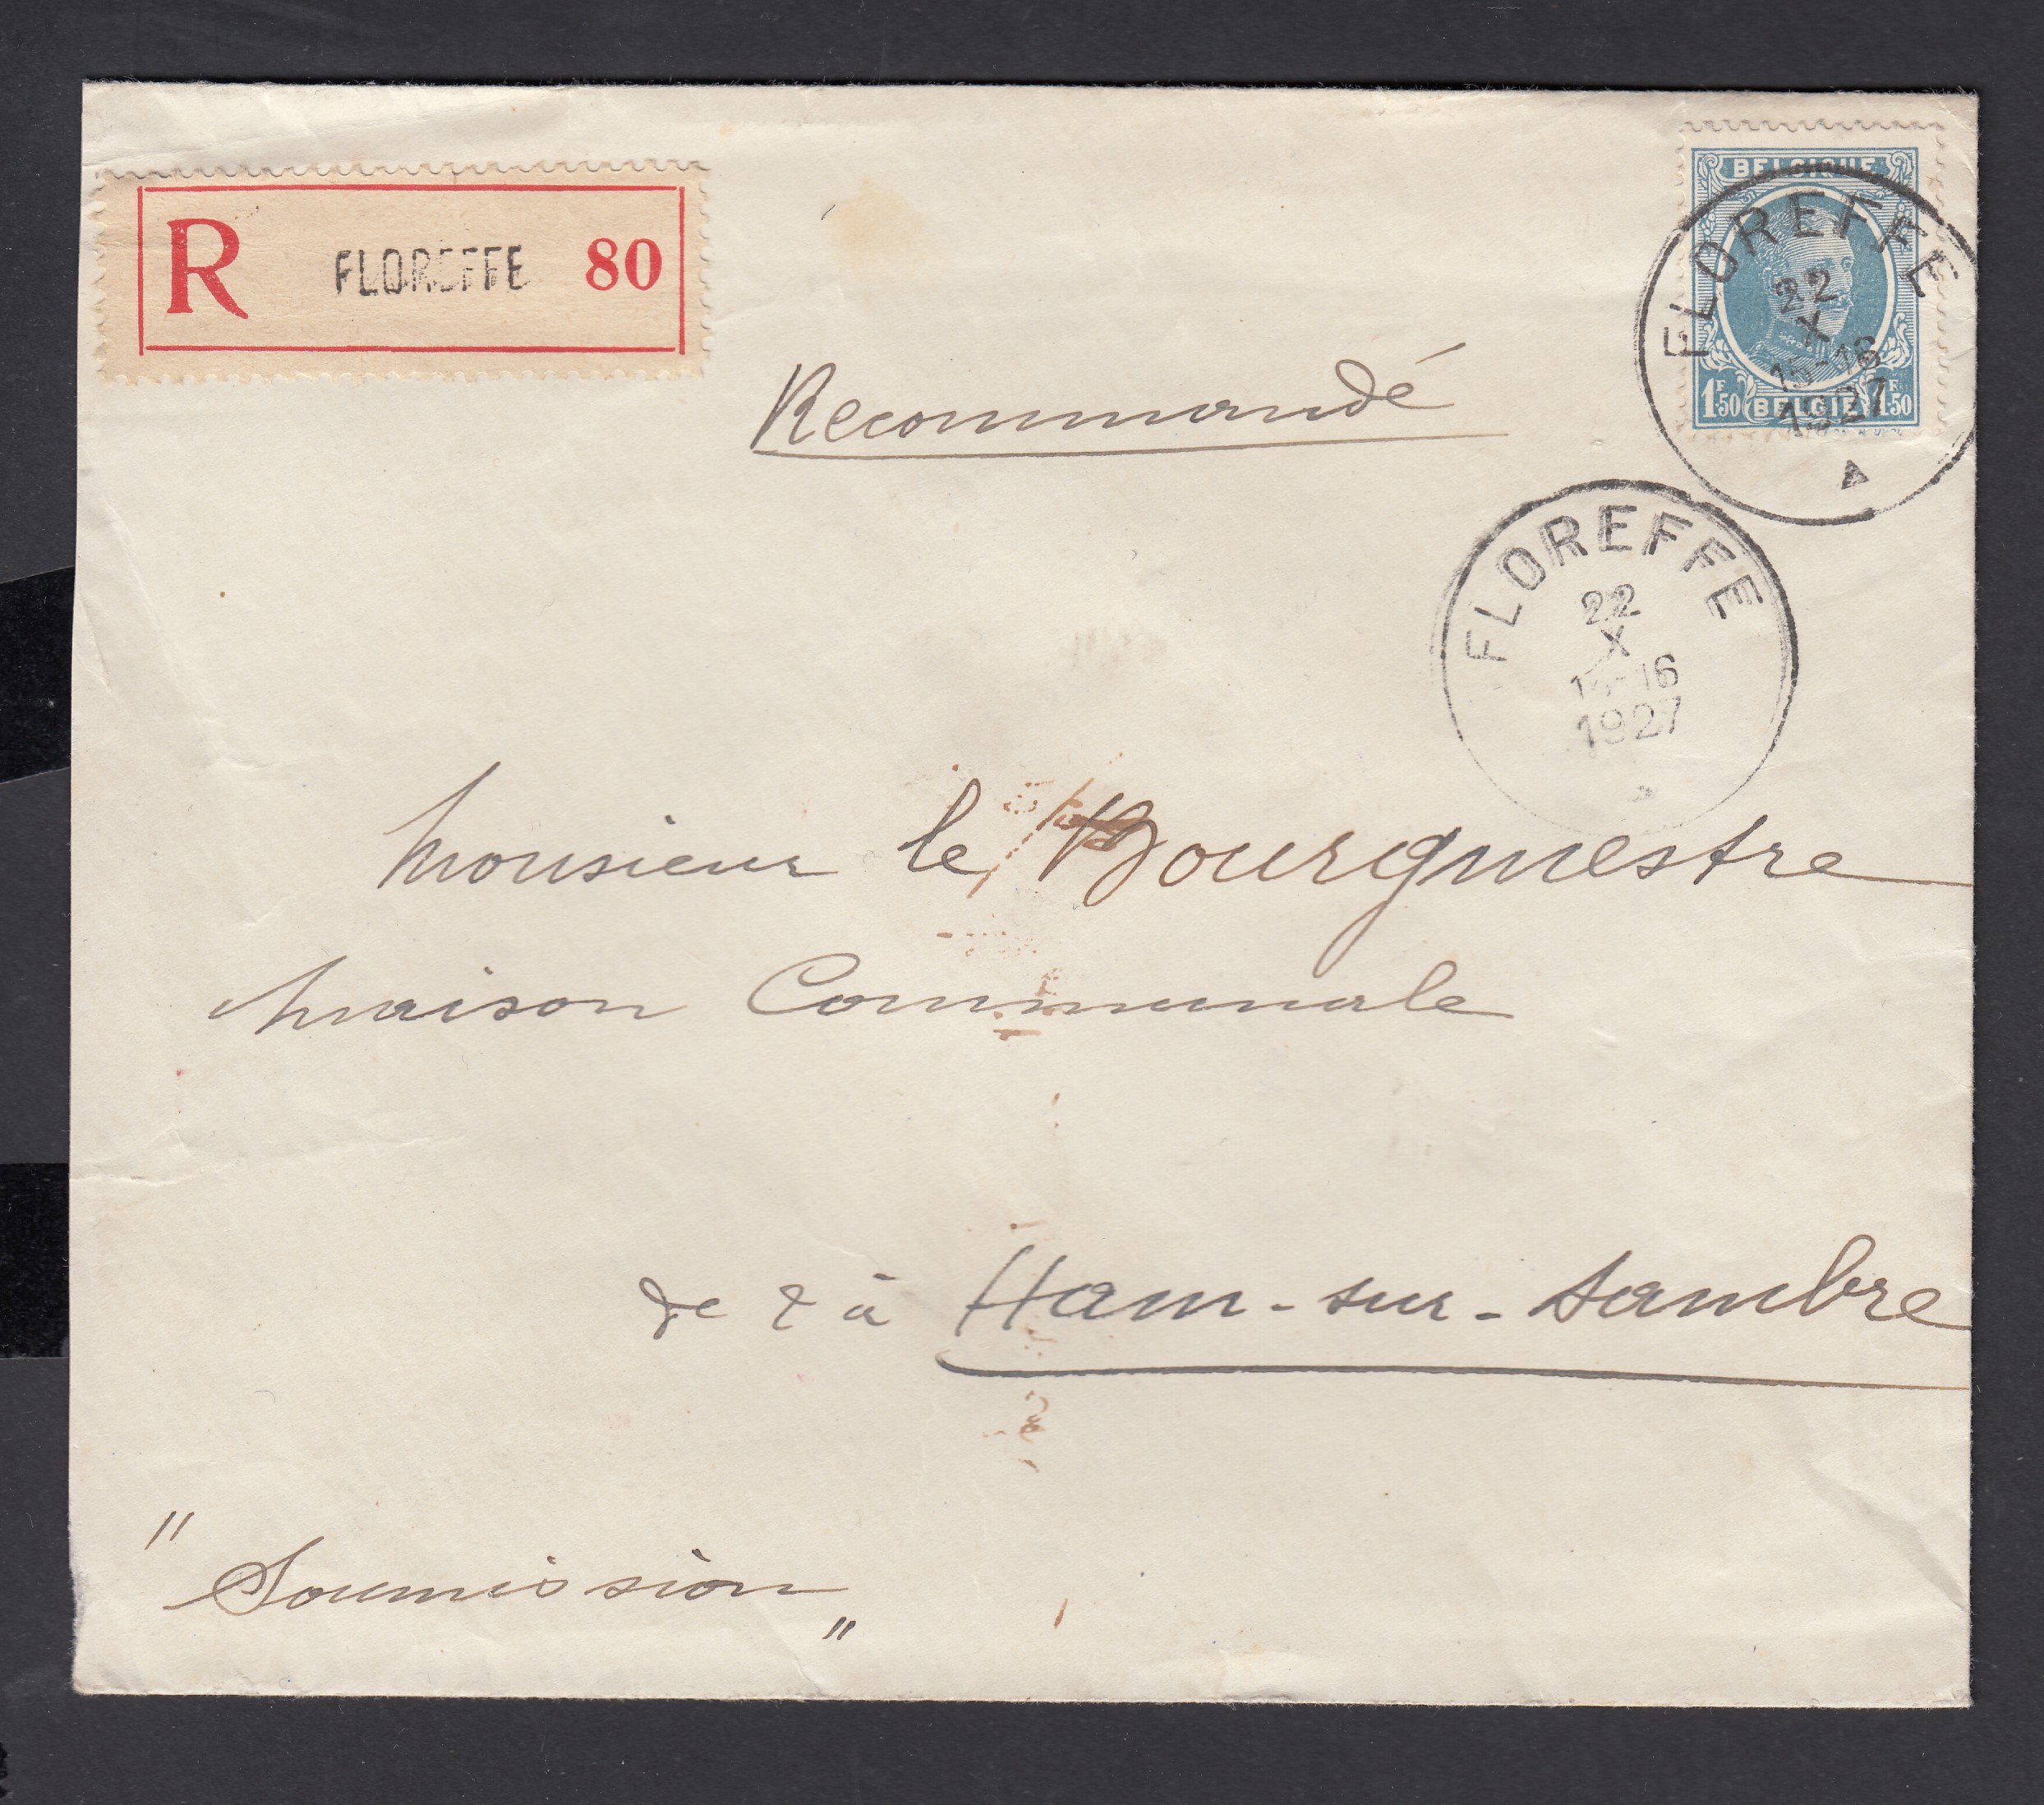 R FLOREFFE 80
BELGIQUE
1F50 BELGIE 1F50
FLOREFFE
22
X
15-16
1927
Recommandé
FLOREFFE
22
X
15-16
1927
Monsieur le Bourgmestre
Maison Communale
de & à Ham-sur-Sambre
"Soumission"